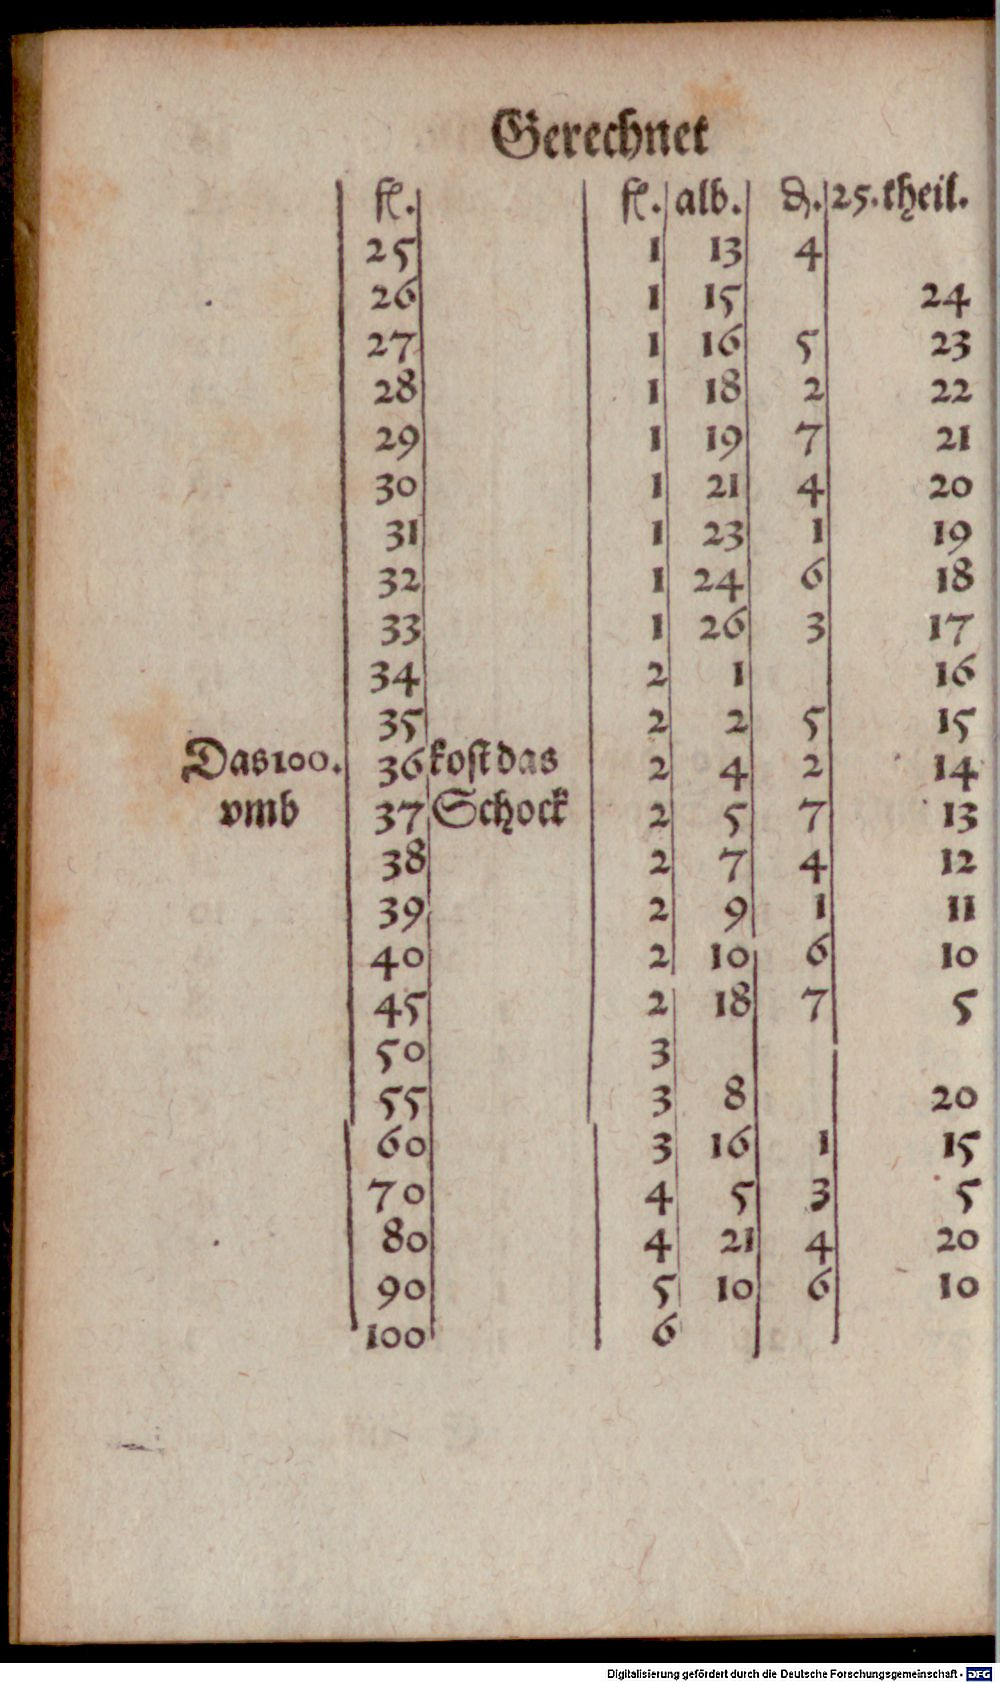 Gerechnet
fl. fl. alb. d. 25. theil.
25 1 13 4
26 1 15 24
27 1 16 5 23
28 1 18 2 22
29 1 19 7 21
30 1 21 4 20
31 1 23 1 19
32 1 24 6 18
33 1 26 3 17
34 2 1 16
35 2 2 5 15
Das 100. 36 kost das 2 4 2 14
vmb 37 Schock 2 5 7 13
38 2 7 4 12
39 2 9 1 11
40 2 10 6 10
45 2 18 7 5
50 3
55 3 8 20
60 3 16 1 15
70 4 5 3 5
80 4 21 4 20
90 5 10 6 10
100 6
Digitalisierung gefördert durch die Deutsche Forschungsgemeinschaft - DFG